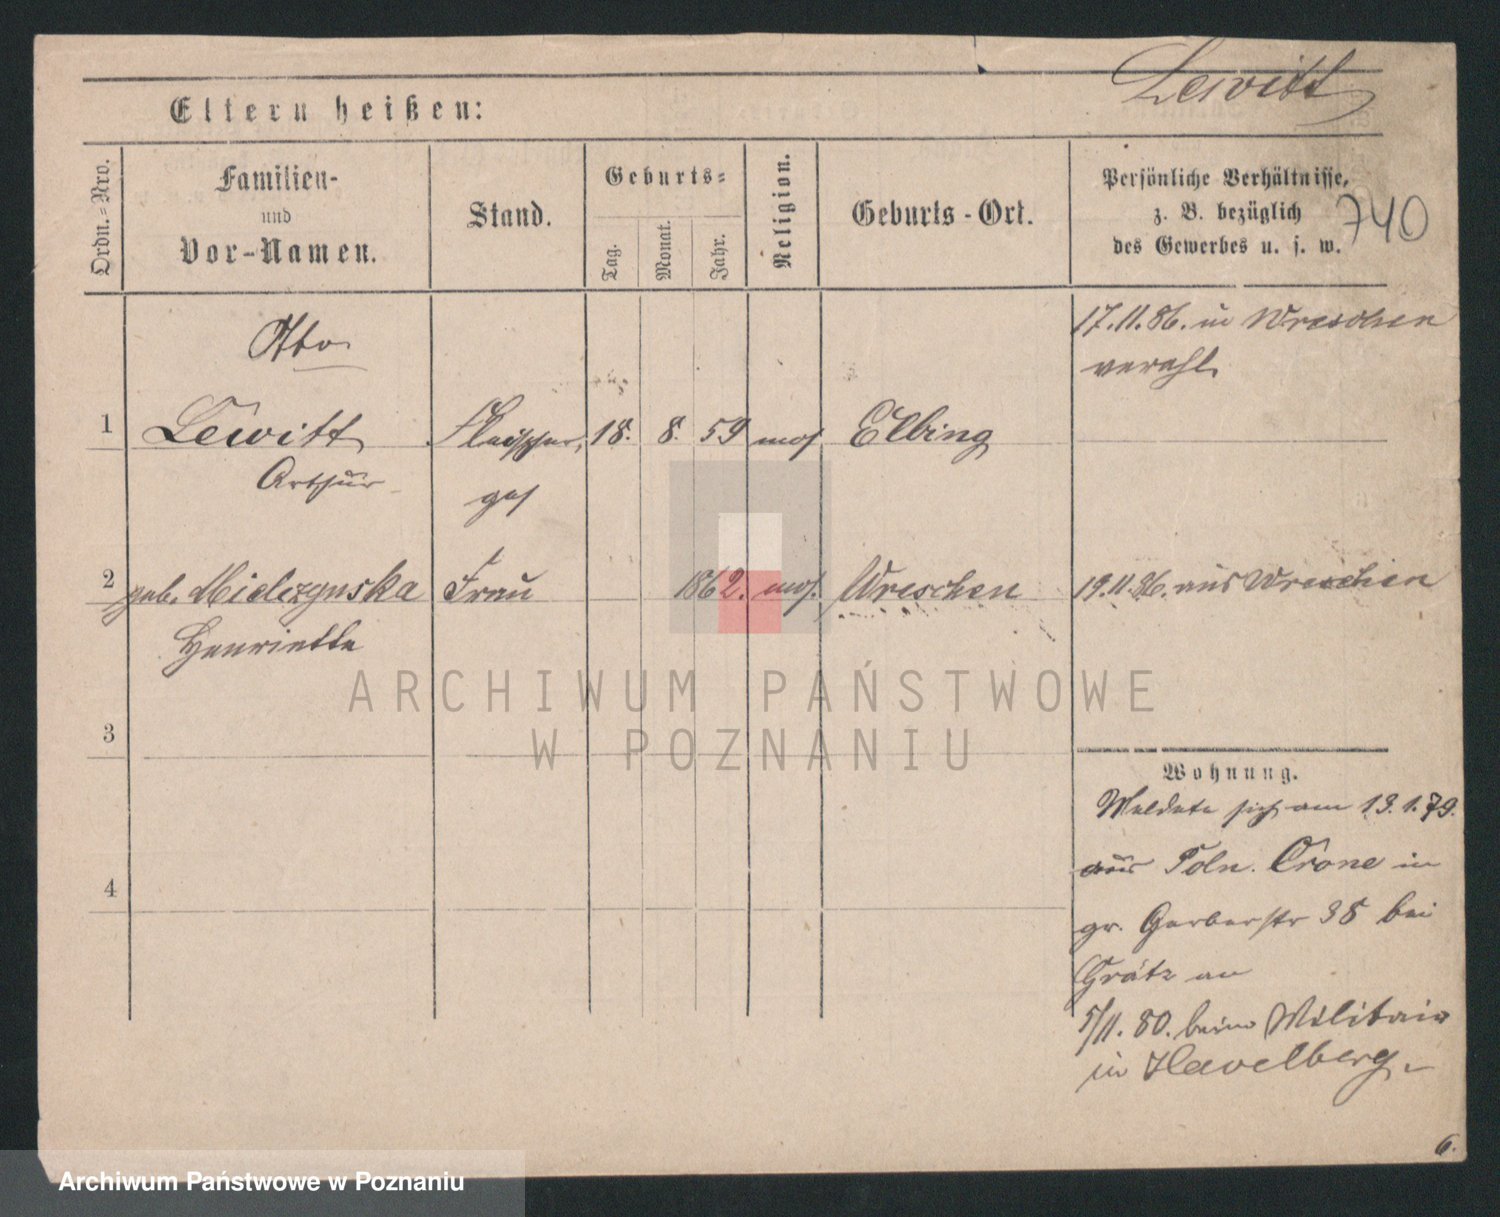 Lewitt
Eltern heißen:
Ordn.-Nro.
Familien-
und
Vor-Namen.
Stand.
Geburts-
Tag.
Monat.
Jahr.
Religion.
Geburts-Ort.
Persönliche Verhältnisse,
z. B. bezüglich
des Gewerbes u. s. w.
740
Otto
17.11.86. in Wreschen
verehl.
1 Lewitt Fleischer, 18. 8. 59 mos Elbing
Arthur
ges
2 geb. Mielczynska Frau 1862. mos. Wreschen 19.11.86. aus Wreschen
Henriette
ARCHIWUM PAŃSTWOWE
W POZNANIU
3
Wohnung.
Meldete sich am 13.1.79.
aus Poln. Crone in
4
gr. Gerberstr 38 bei
Grätz an
5/11. 80. beim Militair
in Havelberg.
6.
Archiwum Państwowe w Poznaniu